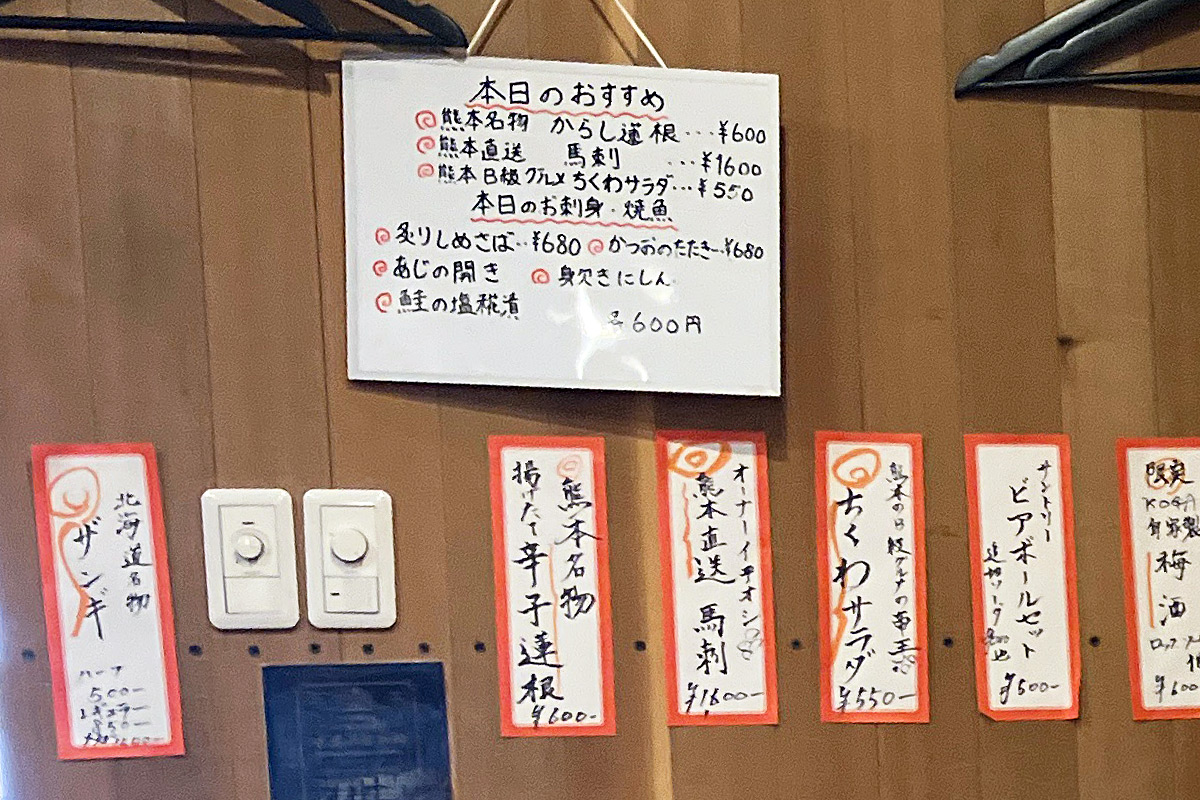 本日のおすすめ
熊本名物 からし蓮根…¥600
熊本直送 馬刺 …¥1600
熊本B級グルメちくわサラダ…¥550
本日のお刺身・焼魚
炙りしめさば‥¥680 かつおのたたき…¥680
あじの開き 身欠きにしん
鮭の塩糀漬
各600円
北海道名物
ザンギ
ハーフ
500-
レギュラー
850-
熊本名物
揚げたて辛子蓮根
¥600-
オーナーイチオシ
熊本直送 馬刺
¥1600-
熊本のB級グルメの帝王
ちくわサラダ
¥550-
サントリー
ビアボールセット
¥500-
限定
自家製
梅酒
ロック
¥600